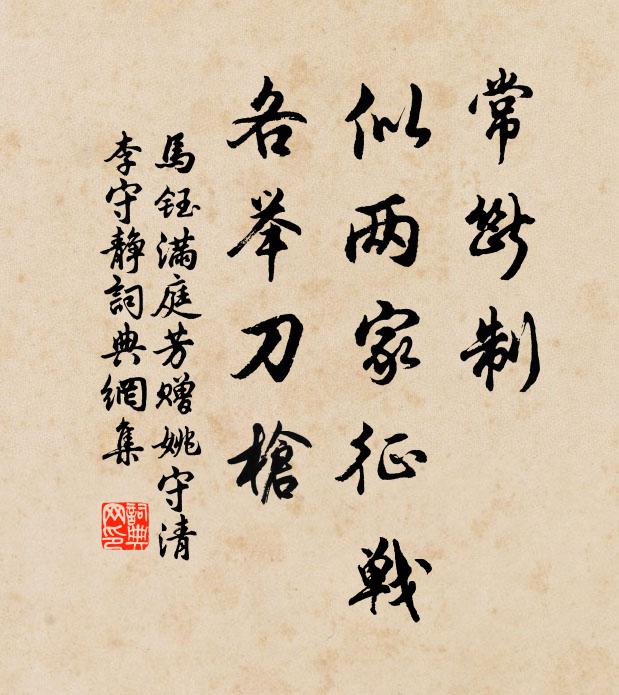 常斷制
似两家征戰
各举刀槍
馬鈺滿庭芳赠姚守清
李守靜詞典網集
詞典网印